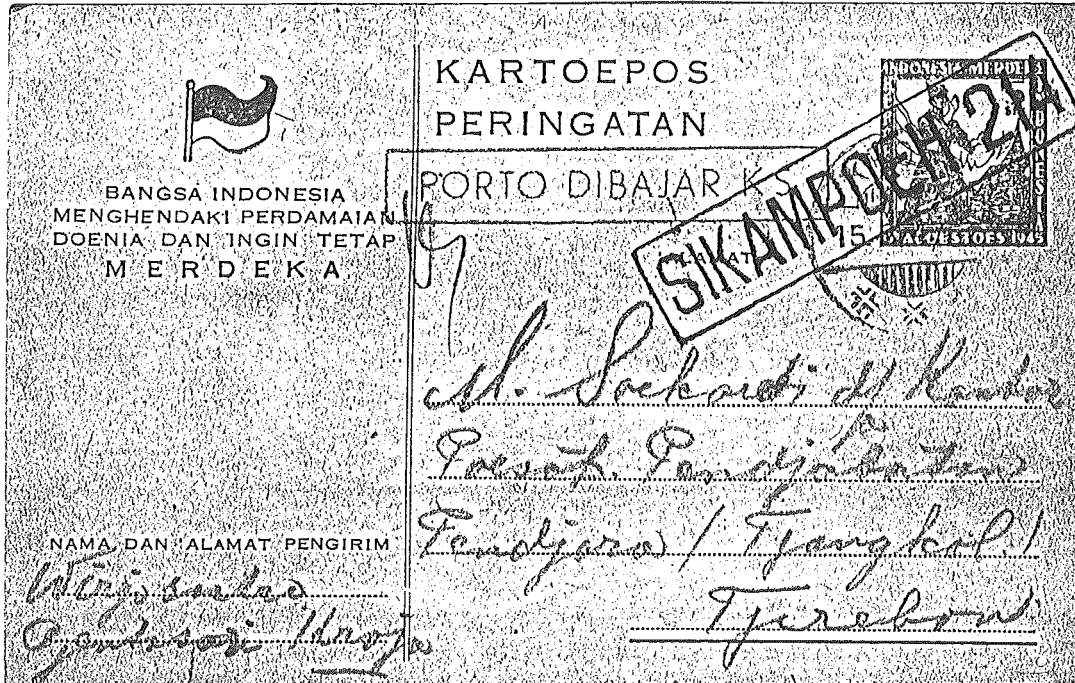 BANGSA INDONESIA
MENGHENDAKI PERDAMAIAN
DOENIA DAN INGIN TETAP
MERDEKA
NAMA DAN ALAMAT PENGIRIM
KARTOEPOS
PERINGATAN
PORTO DIBAJAR KS
SIKAMPOEH 21
INDONESIA MERDEKA
17 AGOESTOES 1945
15
M. Soekardi d/ Kantor
Poesat Pendjabatan
Pendjara / Tjangkol /
Tjirebon